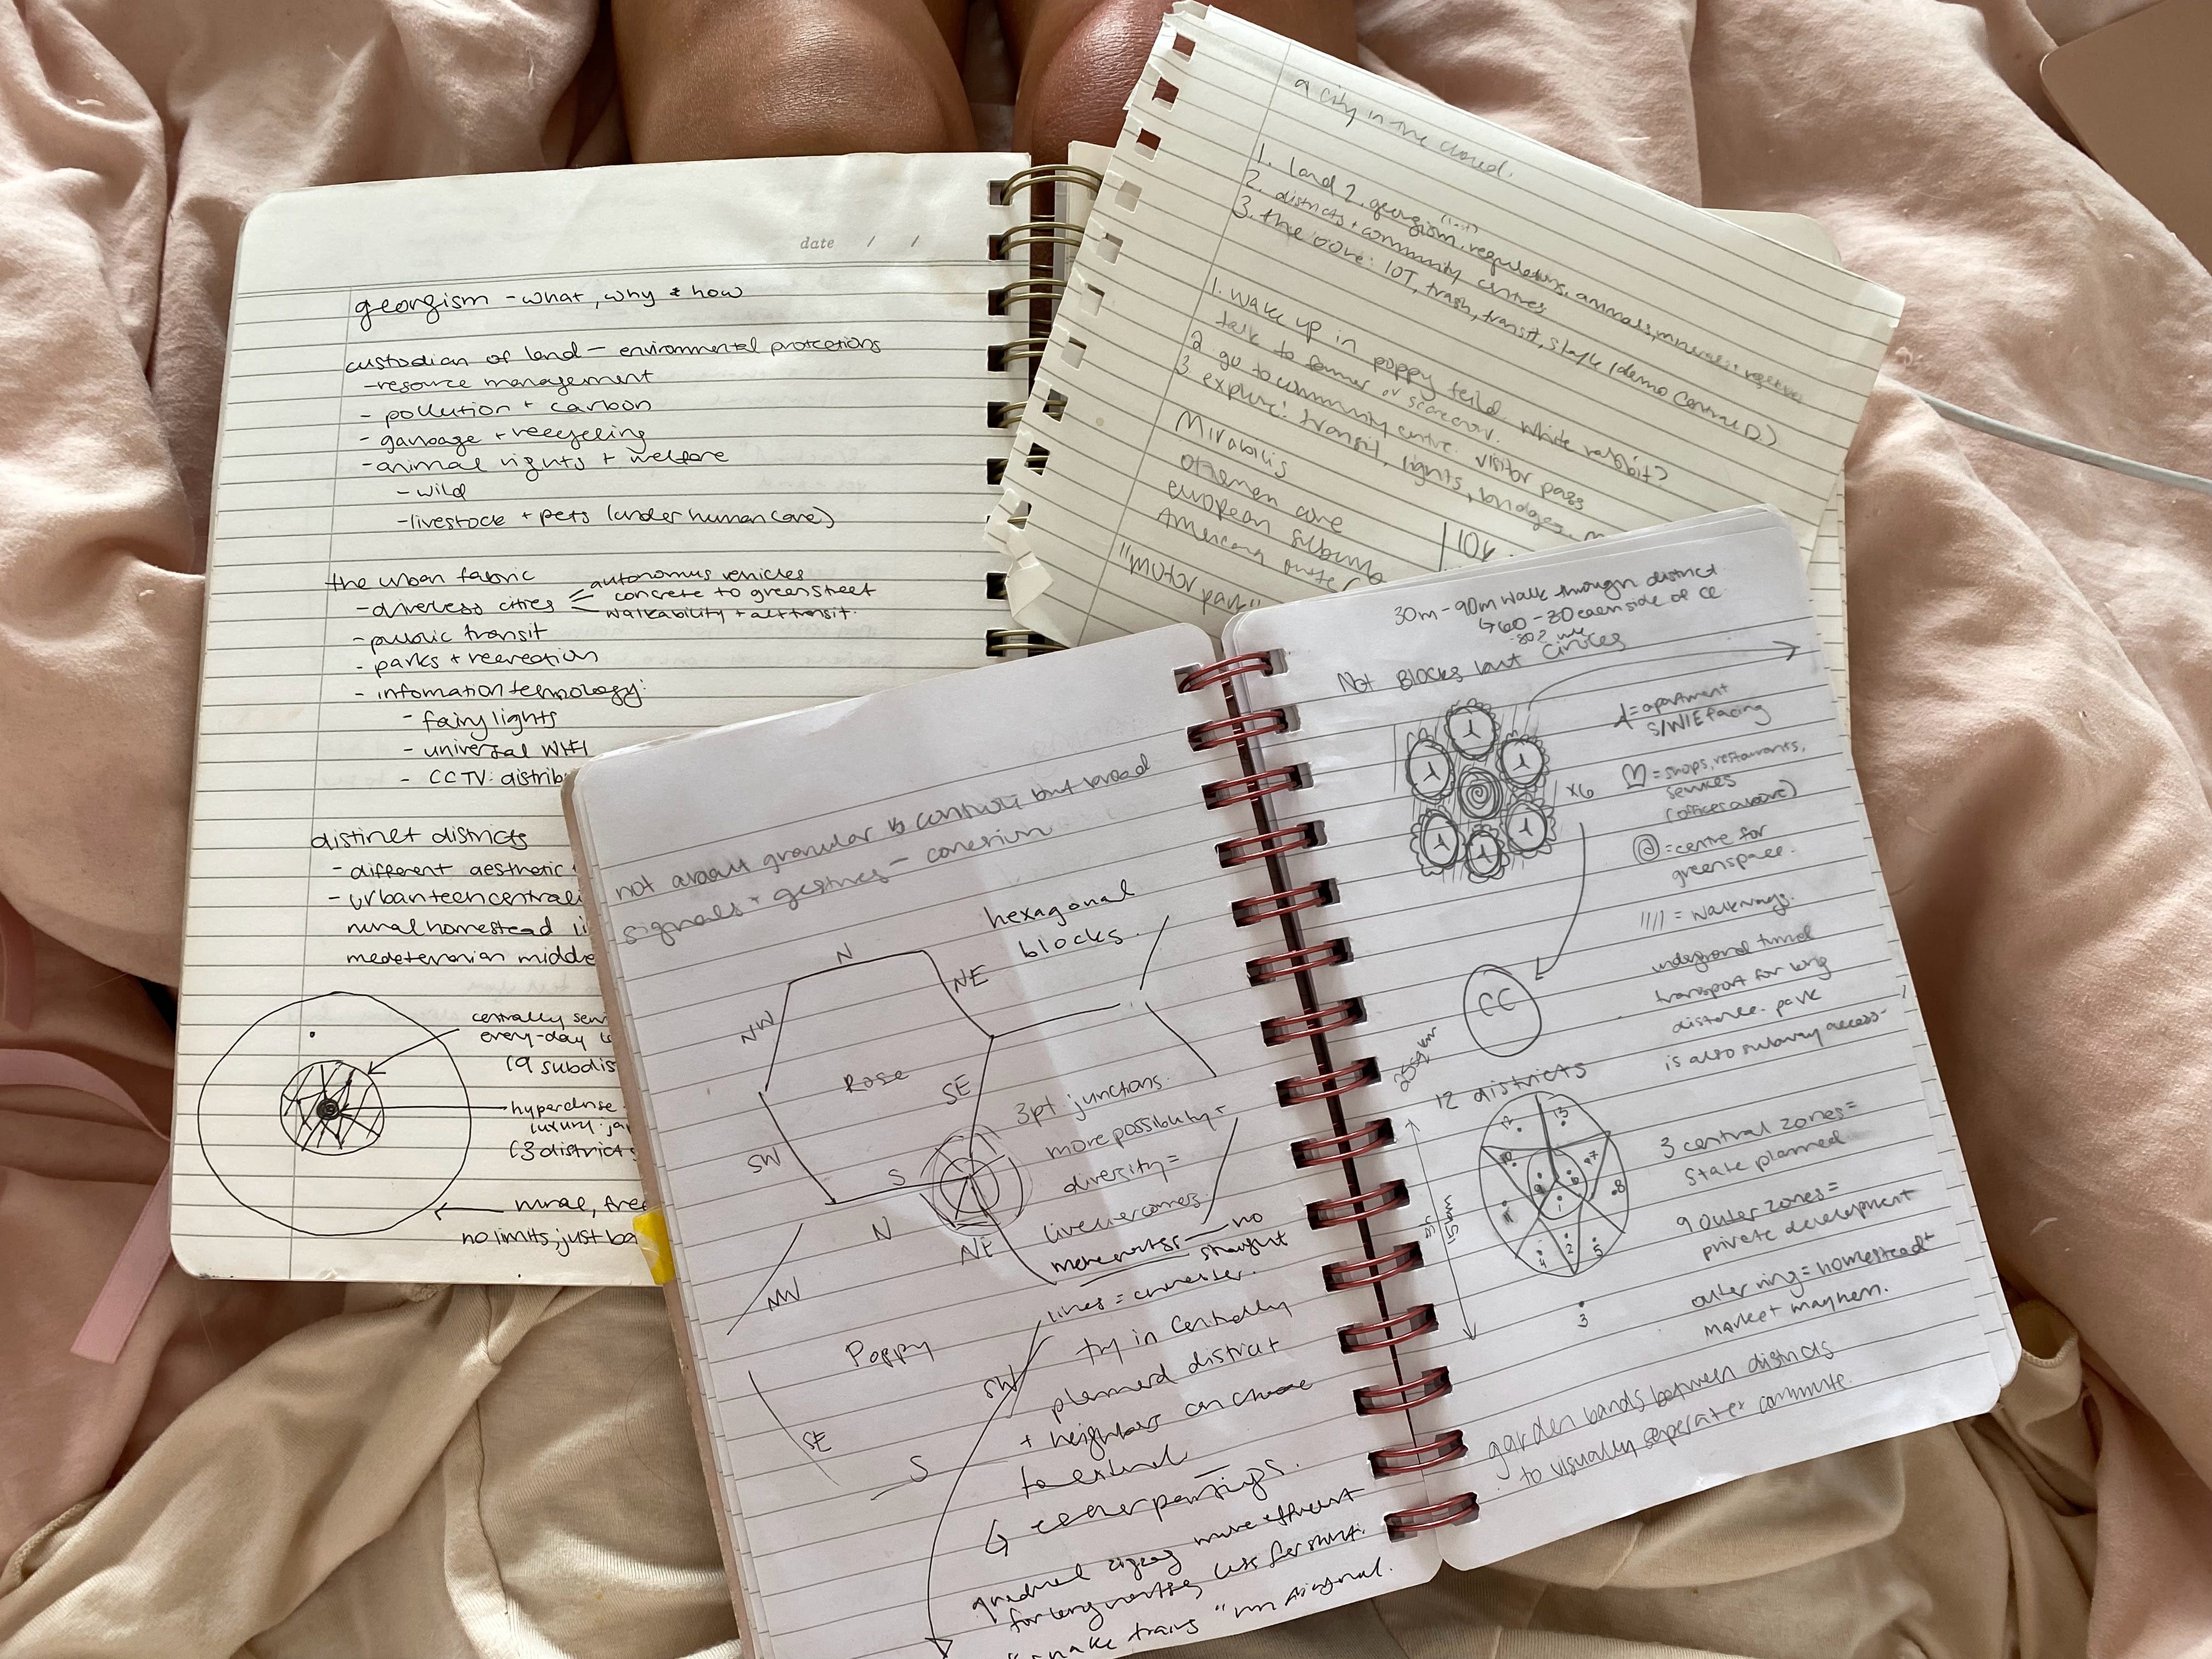 date / /
georgism - what, why & how
custodian of land - environmental protections
- resource management
- pollution + carbon
- garbage + recycling
- animal rights + welfare
- wild
- livestock + pets (under human care)
the urban fabric
- driverless cities
autonomus vehicles
concrete to green street
walkability + alt transit.
- public transit
- parks + recreation
- infomation technology:
- fairy lights
- universal WIFI
- CCTV: distrib
distinct districts
- different aesthetic
- urban tech centrali
rural homestead li
medeterranian middle
centrally
every-day
(9 subdis
hyperdense
luxury
(3 districts
rural, free
no limits, just
a city in the cloud.
1. land 2. georgism, regulations, animals,
2. districts + community centres
3. the core: IOT, trash, transit, style (demo central D.)
1. wake up in poppy feild. white rabbit?
talk to farmer or scarecrow.
2 go to community centre. visitor pass
3. explore: transit, lights, bridges,
Mirabilis
core
european suburbs
Americana
"motor park"
10k
not about granular control but broad
signals + gestures - cohesion
hexagonal
blocks.
N
NE
NW
Rose
SE
SW
S
3pt junctions.
more possibility +
diversity =
livelier corners.
N
NE
NW
more - no
straight
lines =
try in centrally
planned district
+ neighbors can choose
to extend
Poppy
SW
SE
S
gradual zigzag more efficient
for long, less for short.
snake trains "run diagonal.
30m - 90m walk through district
↳ 60 - 30 each side of CC
Not Blocks but Circles
= apartment
S/W/E facing
x6
= shops, restaurants,
services
(offices above)
@ = centre for
greenspace.
//// = walkways.
underground tunnel
transport for long
distance. park
is also subway access.
CC
12 districts
3 central zones =
state planned
9 outer zones =
private development
outer ring = homestead +
market mayhem.
3
garden bands between districts
to visually seperate + commute.